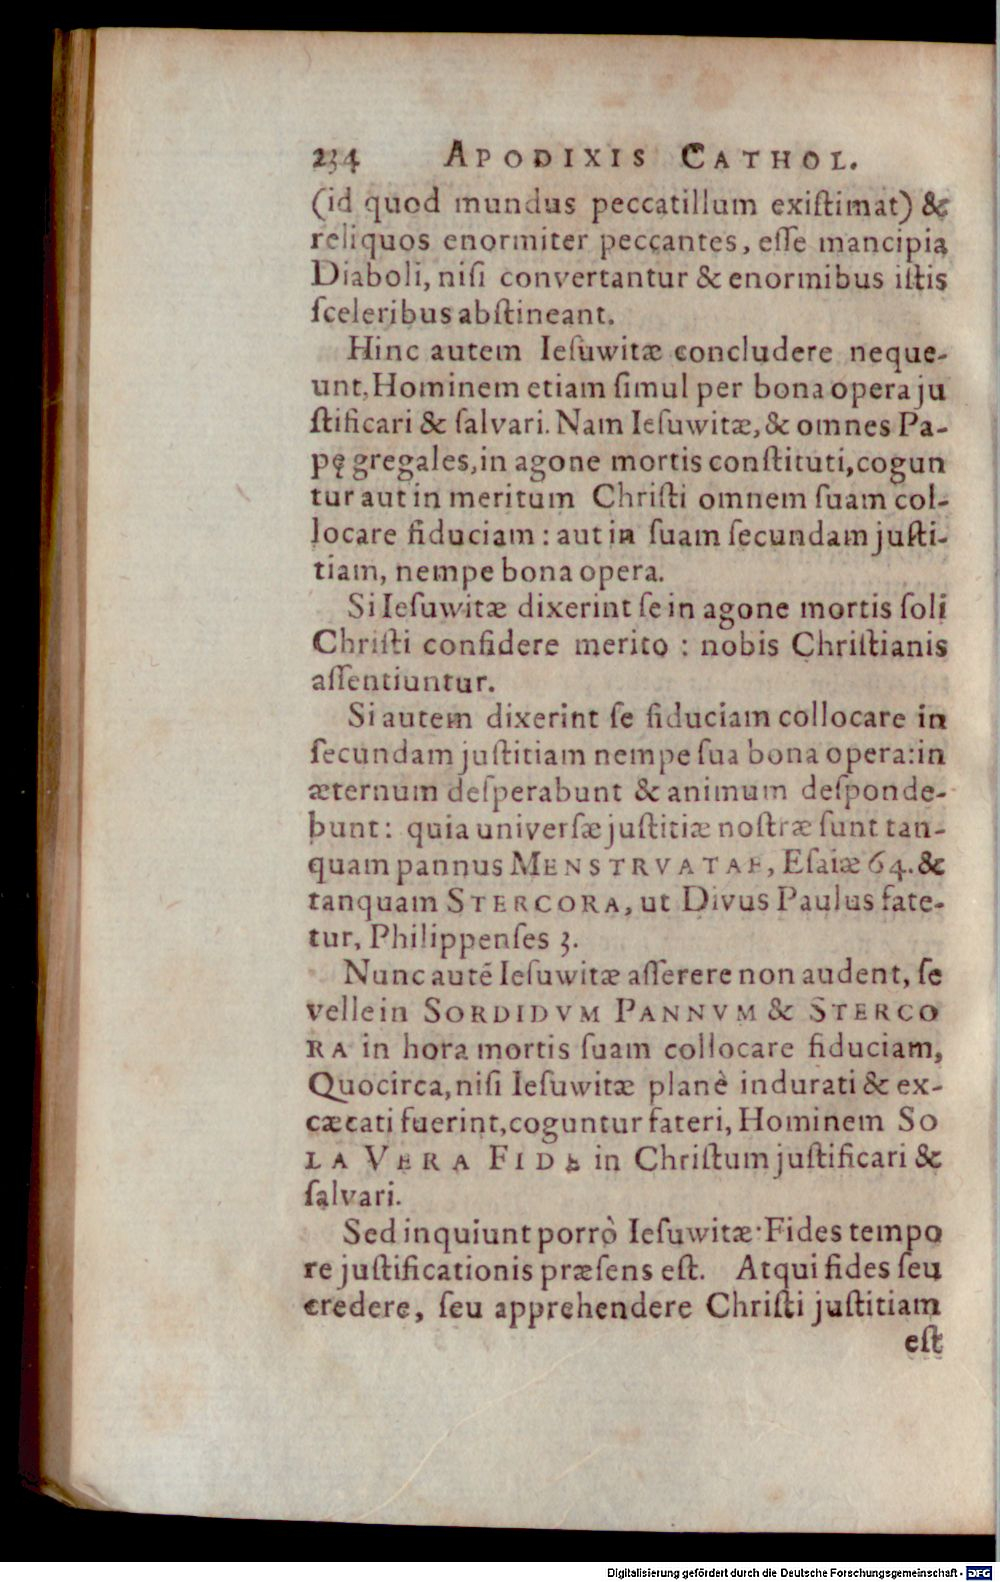 234 APODIXIS CATHOL.
(id quod mundus peccatillum exiſtimat) &
reliquos enormiter peccantes, eſſe mancipia
Diaboli, niſi convertantur & enormibus iſtis
ſceleribus abſtineant.
Hinc autem Ieſuwitæ concludere neque-
unt, Hominem etiam ſimul per bona opera ju
ſtificari & ſalvari. Nam Ieſuwitæ, & omnes Pa-
pę gregales, in agone mortis conſtituti, cogun
tur aut in meritum Chriſti omnem ſuam col-
locare fiduciam : aut in ſuam ſecundam juſti-
tiam, nempe bona opera.
Si Ieſuwitæ dixerint ſe in agone mortis ſoli
Chriſti confidere merito : nobis Chriſtianis
aſſentiuntur.
Si autem dixerint ſe fiduciam collocare in
ſecundam juſtitiam nempe ſua bona opera: in
æternum deſperabunt & animum deſponde-
bunt : quia univerſæ juſtitiæ noſtræ ſunt tan-
quam pannus MENSTRVATAE, Eſaiæ 64. &
tanquam STERCORA, ut Divus Paulus fate-
tur, Philippenſes 3.
Nunc autē Ieſuwitæ aſſerere non audent, ſe
velle in SORDIDVM PANNVM & STERCO
RA in hora mortis ſuam collocare fiduciam,
Quocirca, niſi Ieſuwitæ planè indurati & ex-
cæcati fuerint, coguntur fateri, Hominem SO
LA VERA FIDE in Chriſtum juſtificari &
ſalvari.
Sed inquiunt porrò Ieſuwitæ: Fides tempo
re juſtificationis præſens eſt. Atqui fides ſeu
credere, ſeu apprehendere Chriſti juſtitiam
eſt
Digitalisierung gefördert durch die Deutsche Forschungsgemeinschaft - DFG